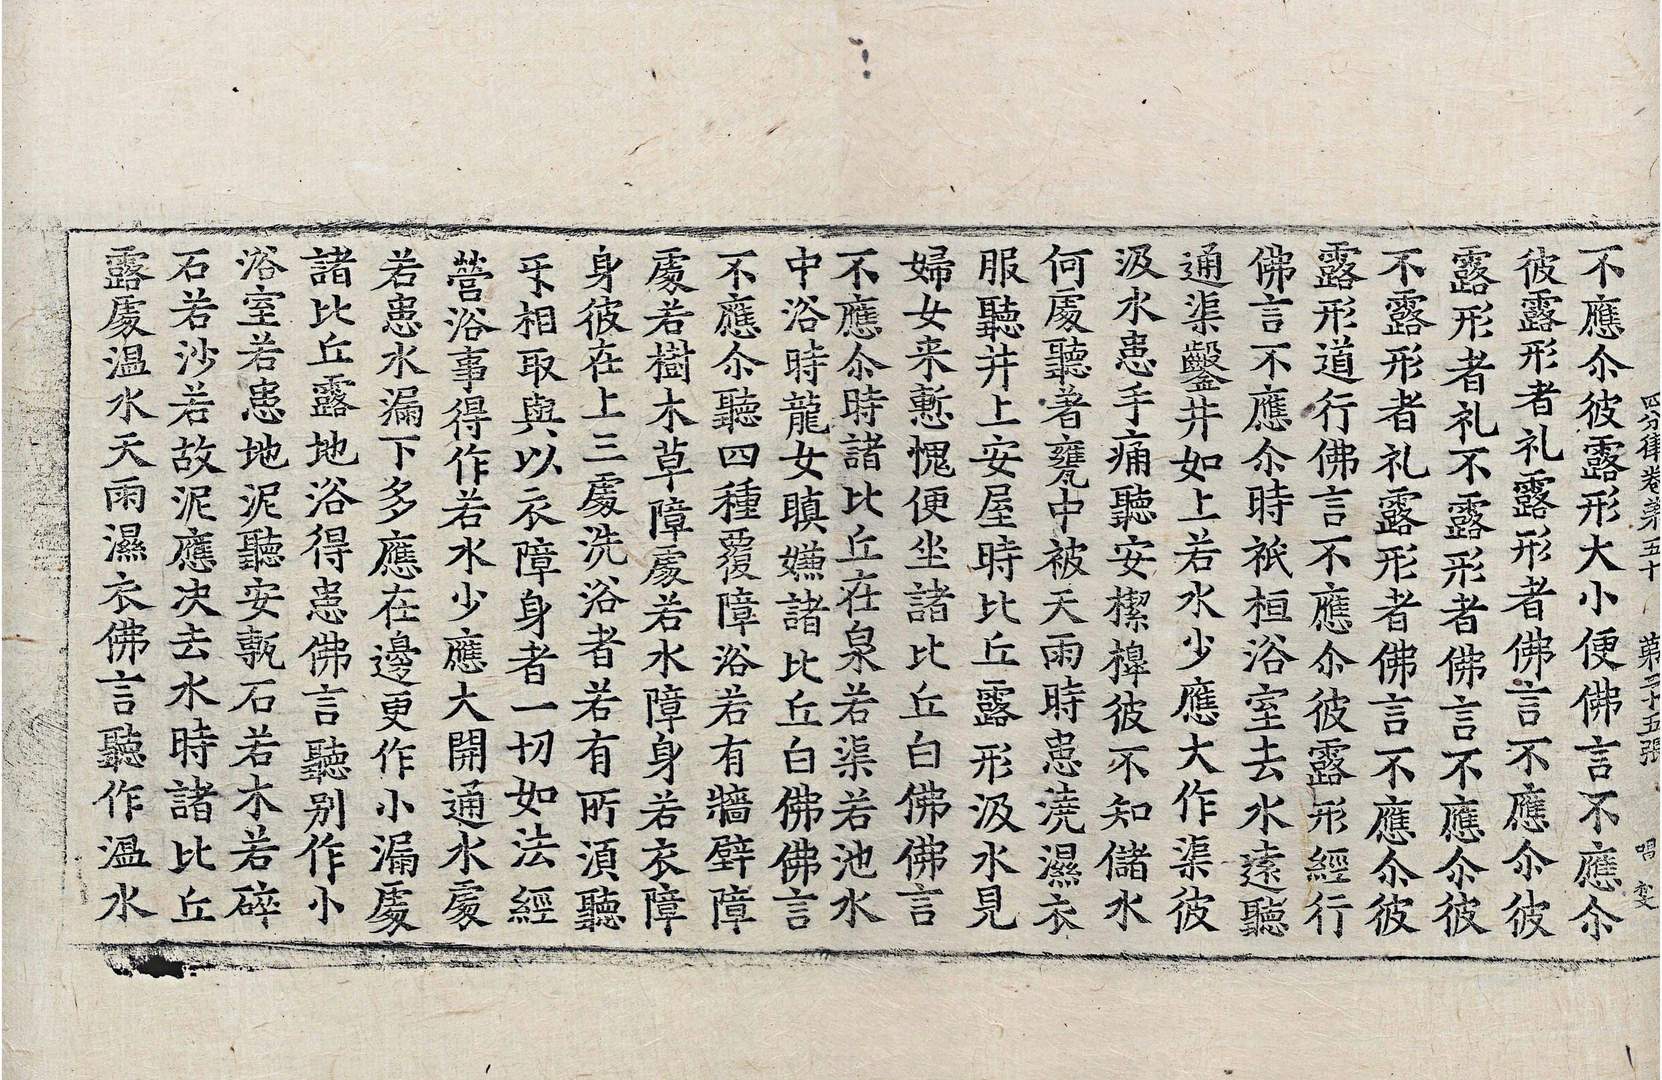 四分律卷第五十　第二十五張　唱　㕝
不應尒彼露形大小便佛言不應尒
彼露形者礼露形者佛言不應尒彼
露形者礼不露形者佛言不應尒彼
不露形者礼露形者佛言不應尒彼
露形道行佛言不應尒彼露形經行
佛言不應尒時祇桓浴室去水遠聽
通渠鑿井如上若水少應大作渠彼
汲水患手痛聽安㯓槔彼不知儲水
何處聽著甕中被天雨時患澆濕衣
服聽井上安屋時比丘露形汲水見
婦女来慙愧便坐諸比丘白佛佛言
不應尒時諸比丘在泉若渠若池水
中浴時龍女瞋嫌諸比丘白佛佛言
不應尒聽四種覆障浴若有牆壁障
處若樹木草障處若水障身若衣障
身彼在上三處洗浴者若有所湏聽
㸦相取與以衣障身者一切如法經
營浴事得作若水少應大開通水處
若患水漏下多應在邊更作小漏處
諸比丘露地浴得患佛言聽別作小
浴室若患地泥聽安甎石若木若碎
石若沙若故泥應决去水時諸比丘
露處温水天雨濕衣佛言聽作温水